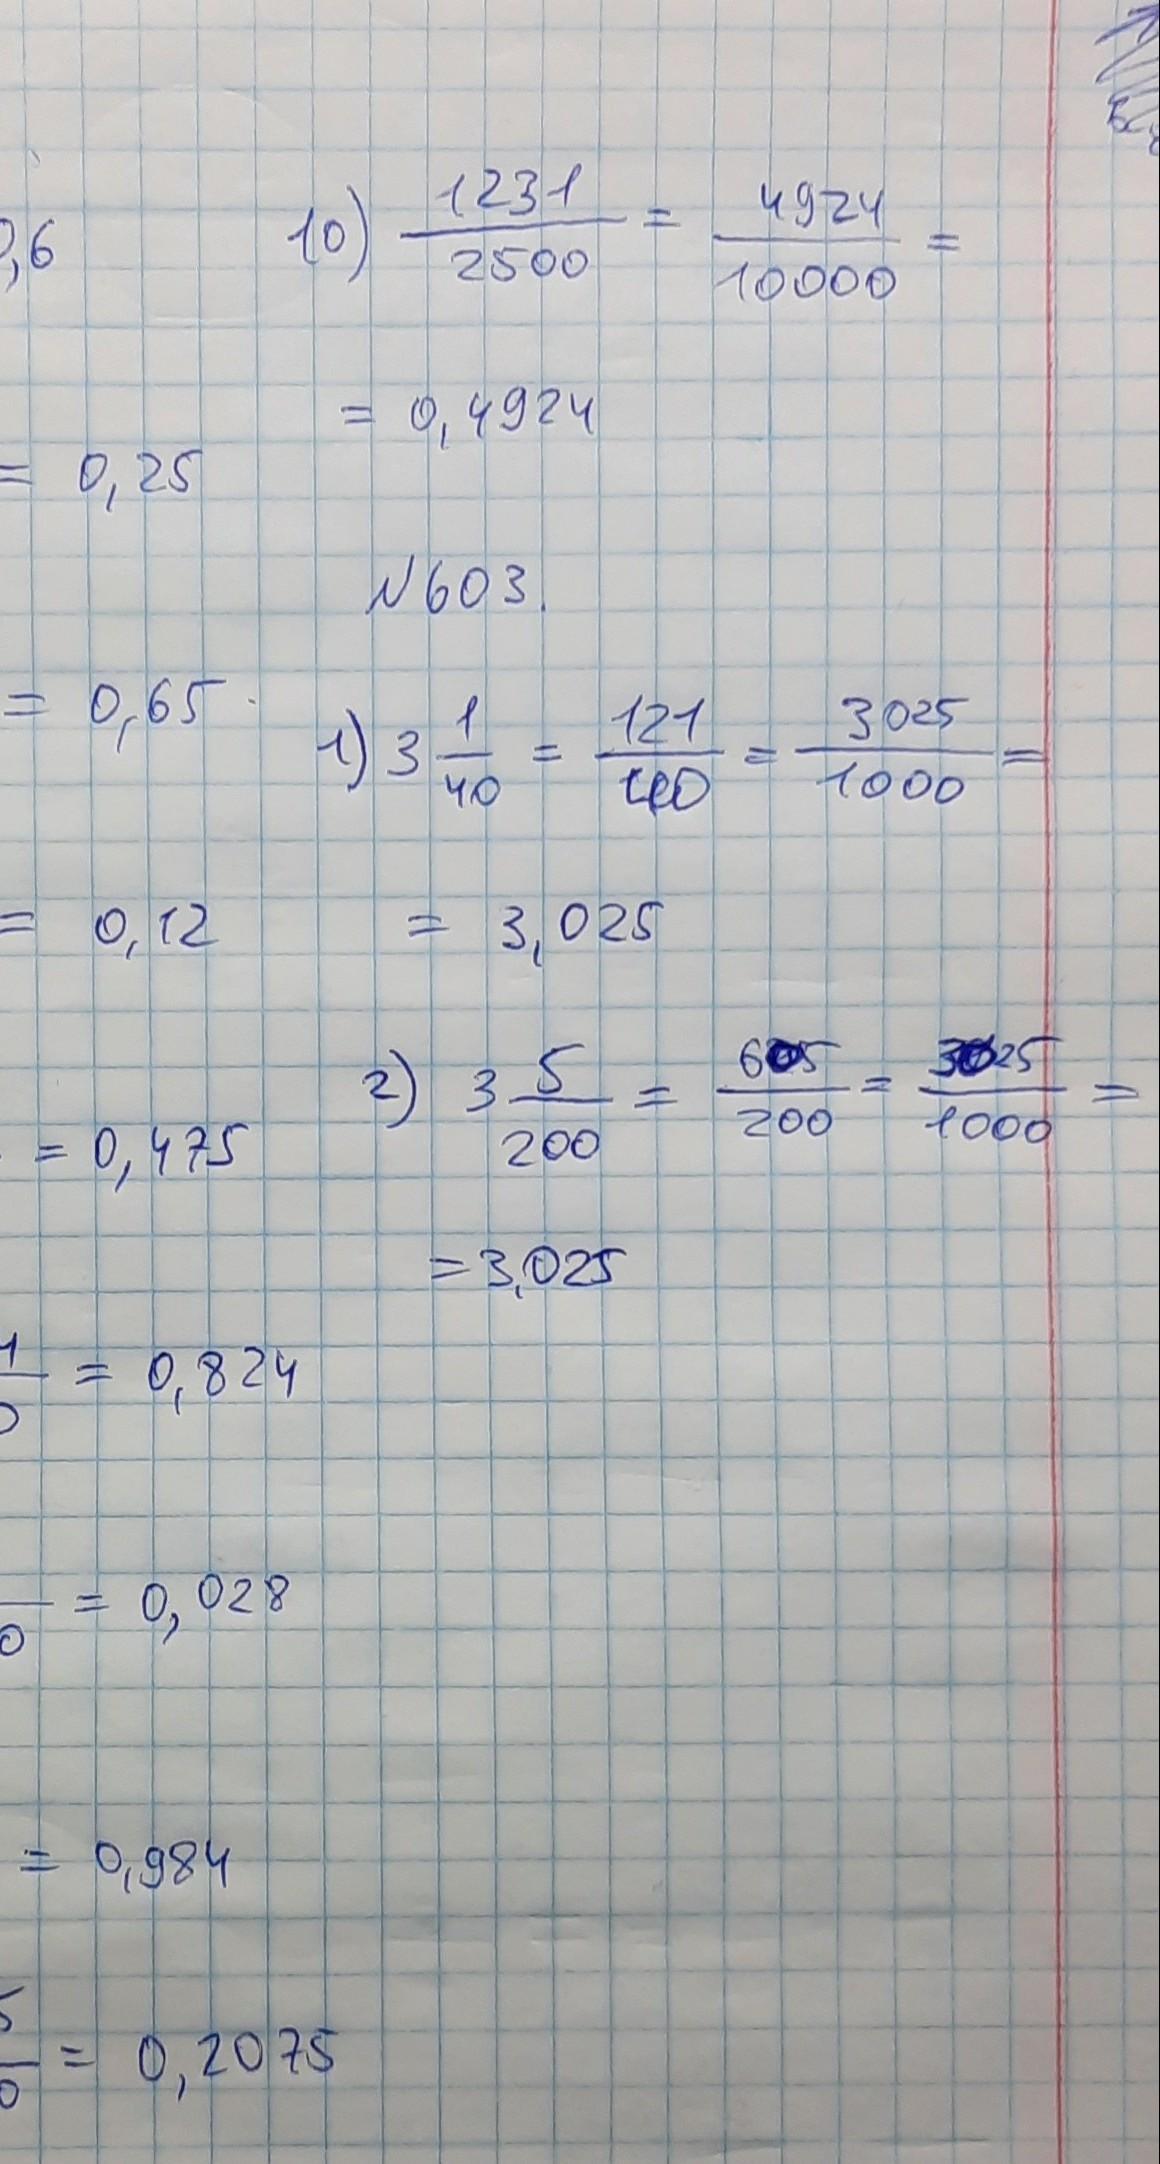 0,6
= 0,25
= 0,65
= 0,12
= 0,475
= 0,824
= 0,028
= 0,984
= 0,2075
10) 1231/2500 = 4924/10000 =
= 0,4924
N603.
1) 3 1/40 = 121/40 = 3025/1000 =
= 3,025
2) 3 5/200 = 605/200 = 3025/1000 =
= 3,025